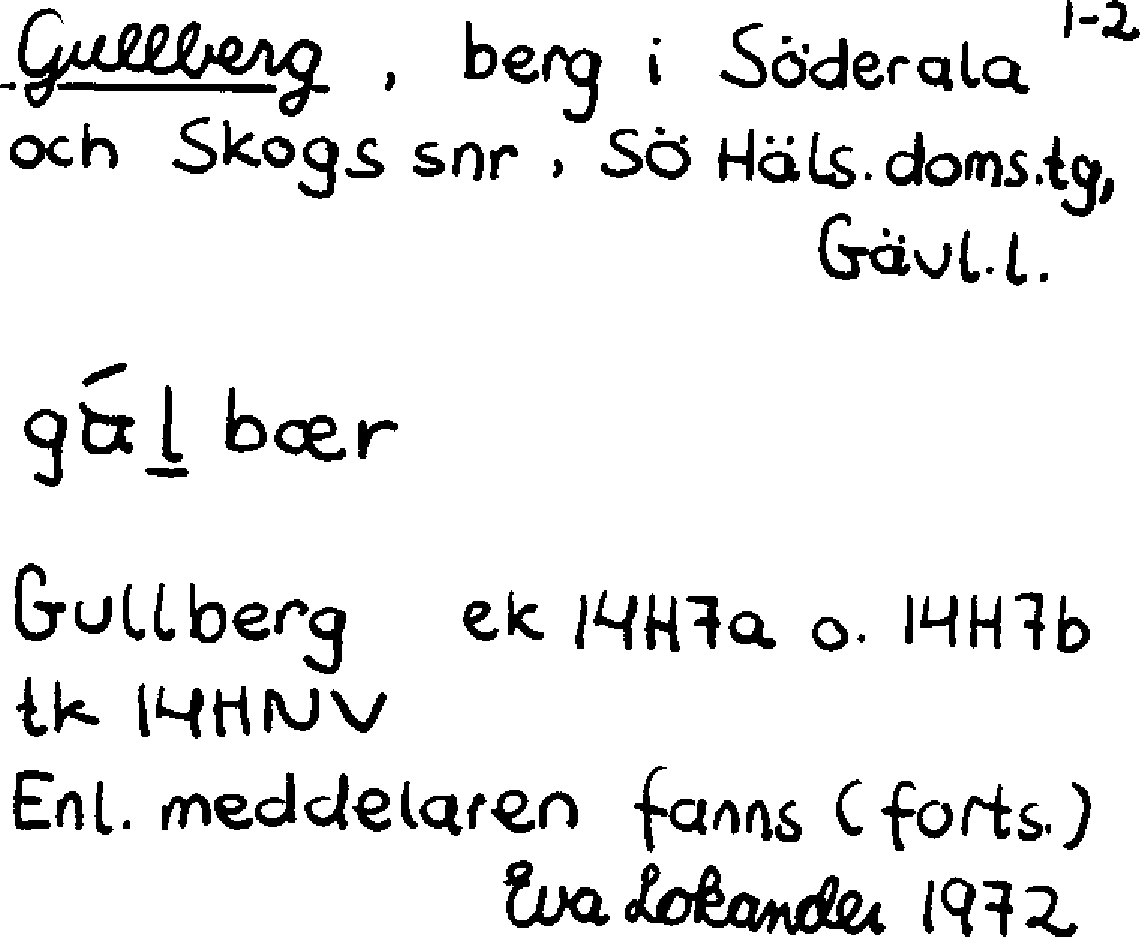 1-2
Gullberg, berg i Söderala
och Skogs snr, Sö Häls. doms.tg,
Gävl.l.
gál bær
Gullberg ek 14H7a o. 14H7b
tk 14HNV
Enl. meddelaren fanns (forts.)
Eva Lokander 1972